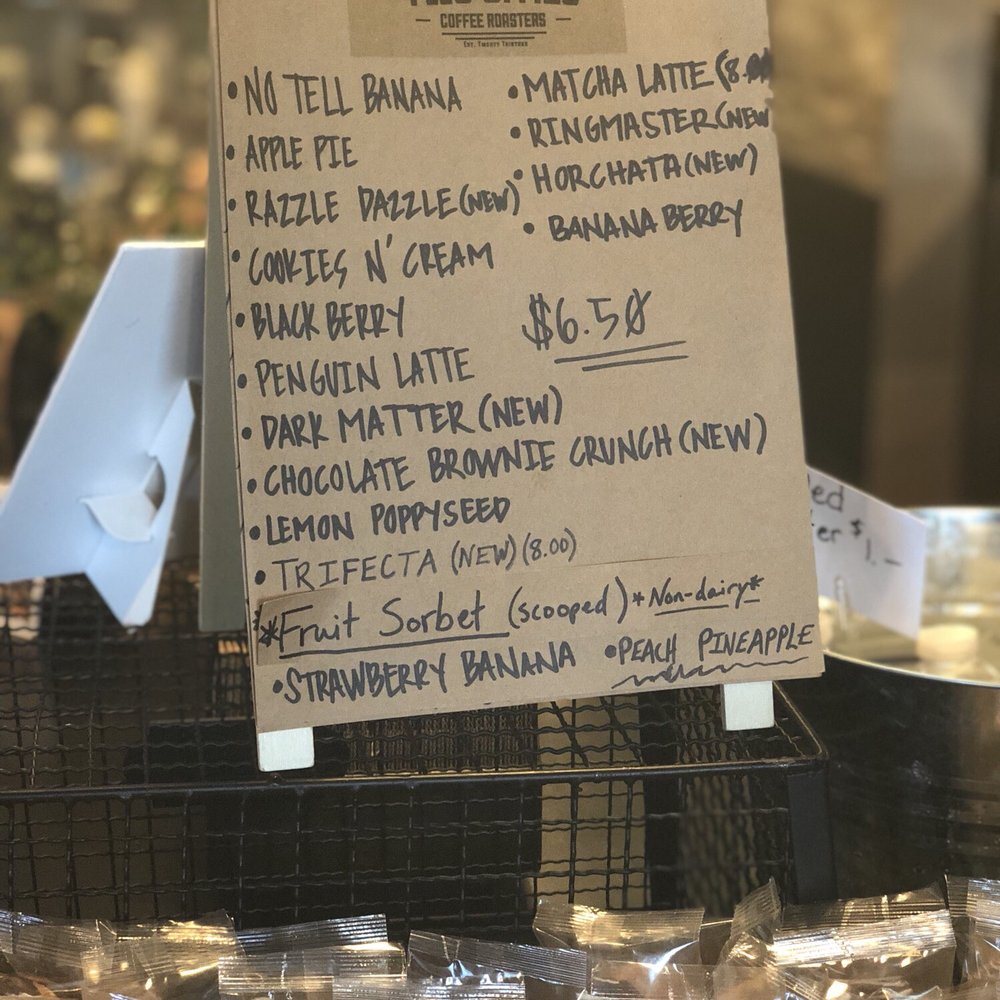 COFFEE ROASTERS
EST. TWENTY THIRTEEN
• NO TELL BANANA
• APPLE PIE
• RAZZLE DAZZLE (NEW)
• COOKIES N' CREAM
• BLACKBERRY
• PENGUIN LATTE
• DARK MATTER (NEW)
• CHOCOLATE BROWNIE CRUNCH (NEW)
• LEMON POPPYSEED
• TRIFECTA (NEW) (8.00)
• MATCHA LATTE (8.
• RINGMASTER (NEW
• HORCHATA (NEW)
• BANANA BERRY
$6.50
*Fruit Sorbet (scooped) *Non-dairy*
• STRAWBERRY BANANA • PEACH PINEAPPLE
ed
er $1.-